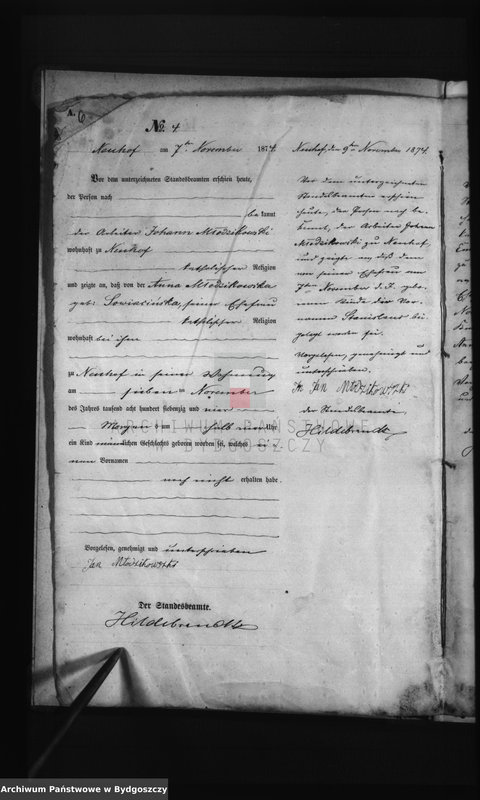 A. 6
№. 4
Neuhof am 7ten November 1874.
Vor dem unterzeichneten Standesbeamten erschien heute,
der Person nach
bekannt
der Arbeiter Johann Młodzikowski
wohnhaft zu Neuhof
katholischer Religion
und zeigte an, daß von der Anna Młodzikowska
geb: Sowiacińska, seiner Ehefrau
katholischer Religion
wohnhaft bei ihm
zu Neuhof in seiner Wohnung
am sieben ten November
des Jahres tausend acht hundert siebenzig und vier
Morgens um halb neun Uhr
ein Kind männlichen Geschlechts geboren worden sei, welches ei-
nen Vornamen
noch nicht erhalten habe.
Vorgelesen, genehmigt und unterschrieben
Jan Młodzikowski
Der Standesbeamte.
Hildebrandt
Neuhof, den 9ten November 1874.
Vor dem unterzeichneten
Standesbeamten erschien
heute, der Person nach be-
kannt, der Arbeiter Johann
Młodzikowski zu Neuhof
und zeigte an, daß dem
von seiner Ehefrau am
7ten November d. J. gebo-
renen Kinde der Vor-
name Stanislaus bei-
gelegt worden sei.
Vorgelesen, genehmigt und
unterschrieben.
Jan Młodzikowski
der Standesbeamte.
Hildebrandt
ARCHIWUM PAŃSTWOWE
W BYDGOSZCZY
Archiwum Państwowe w Bydgoszczy